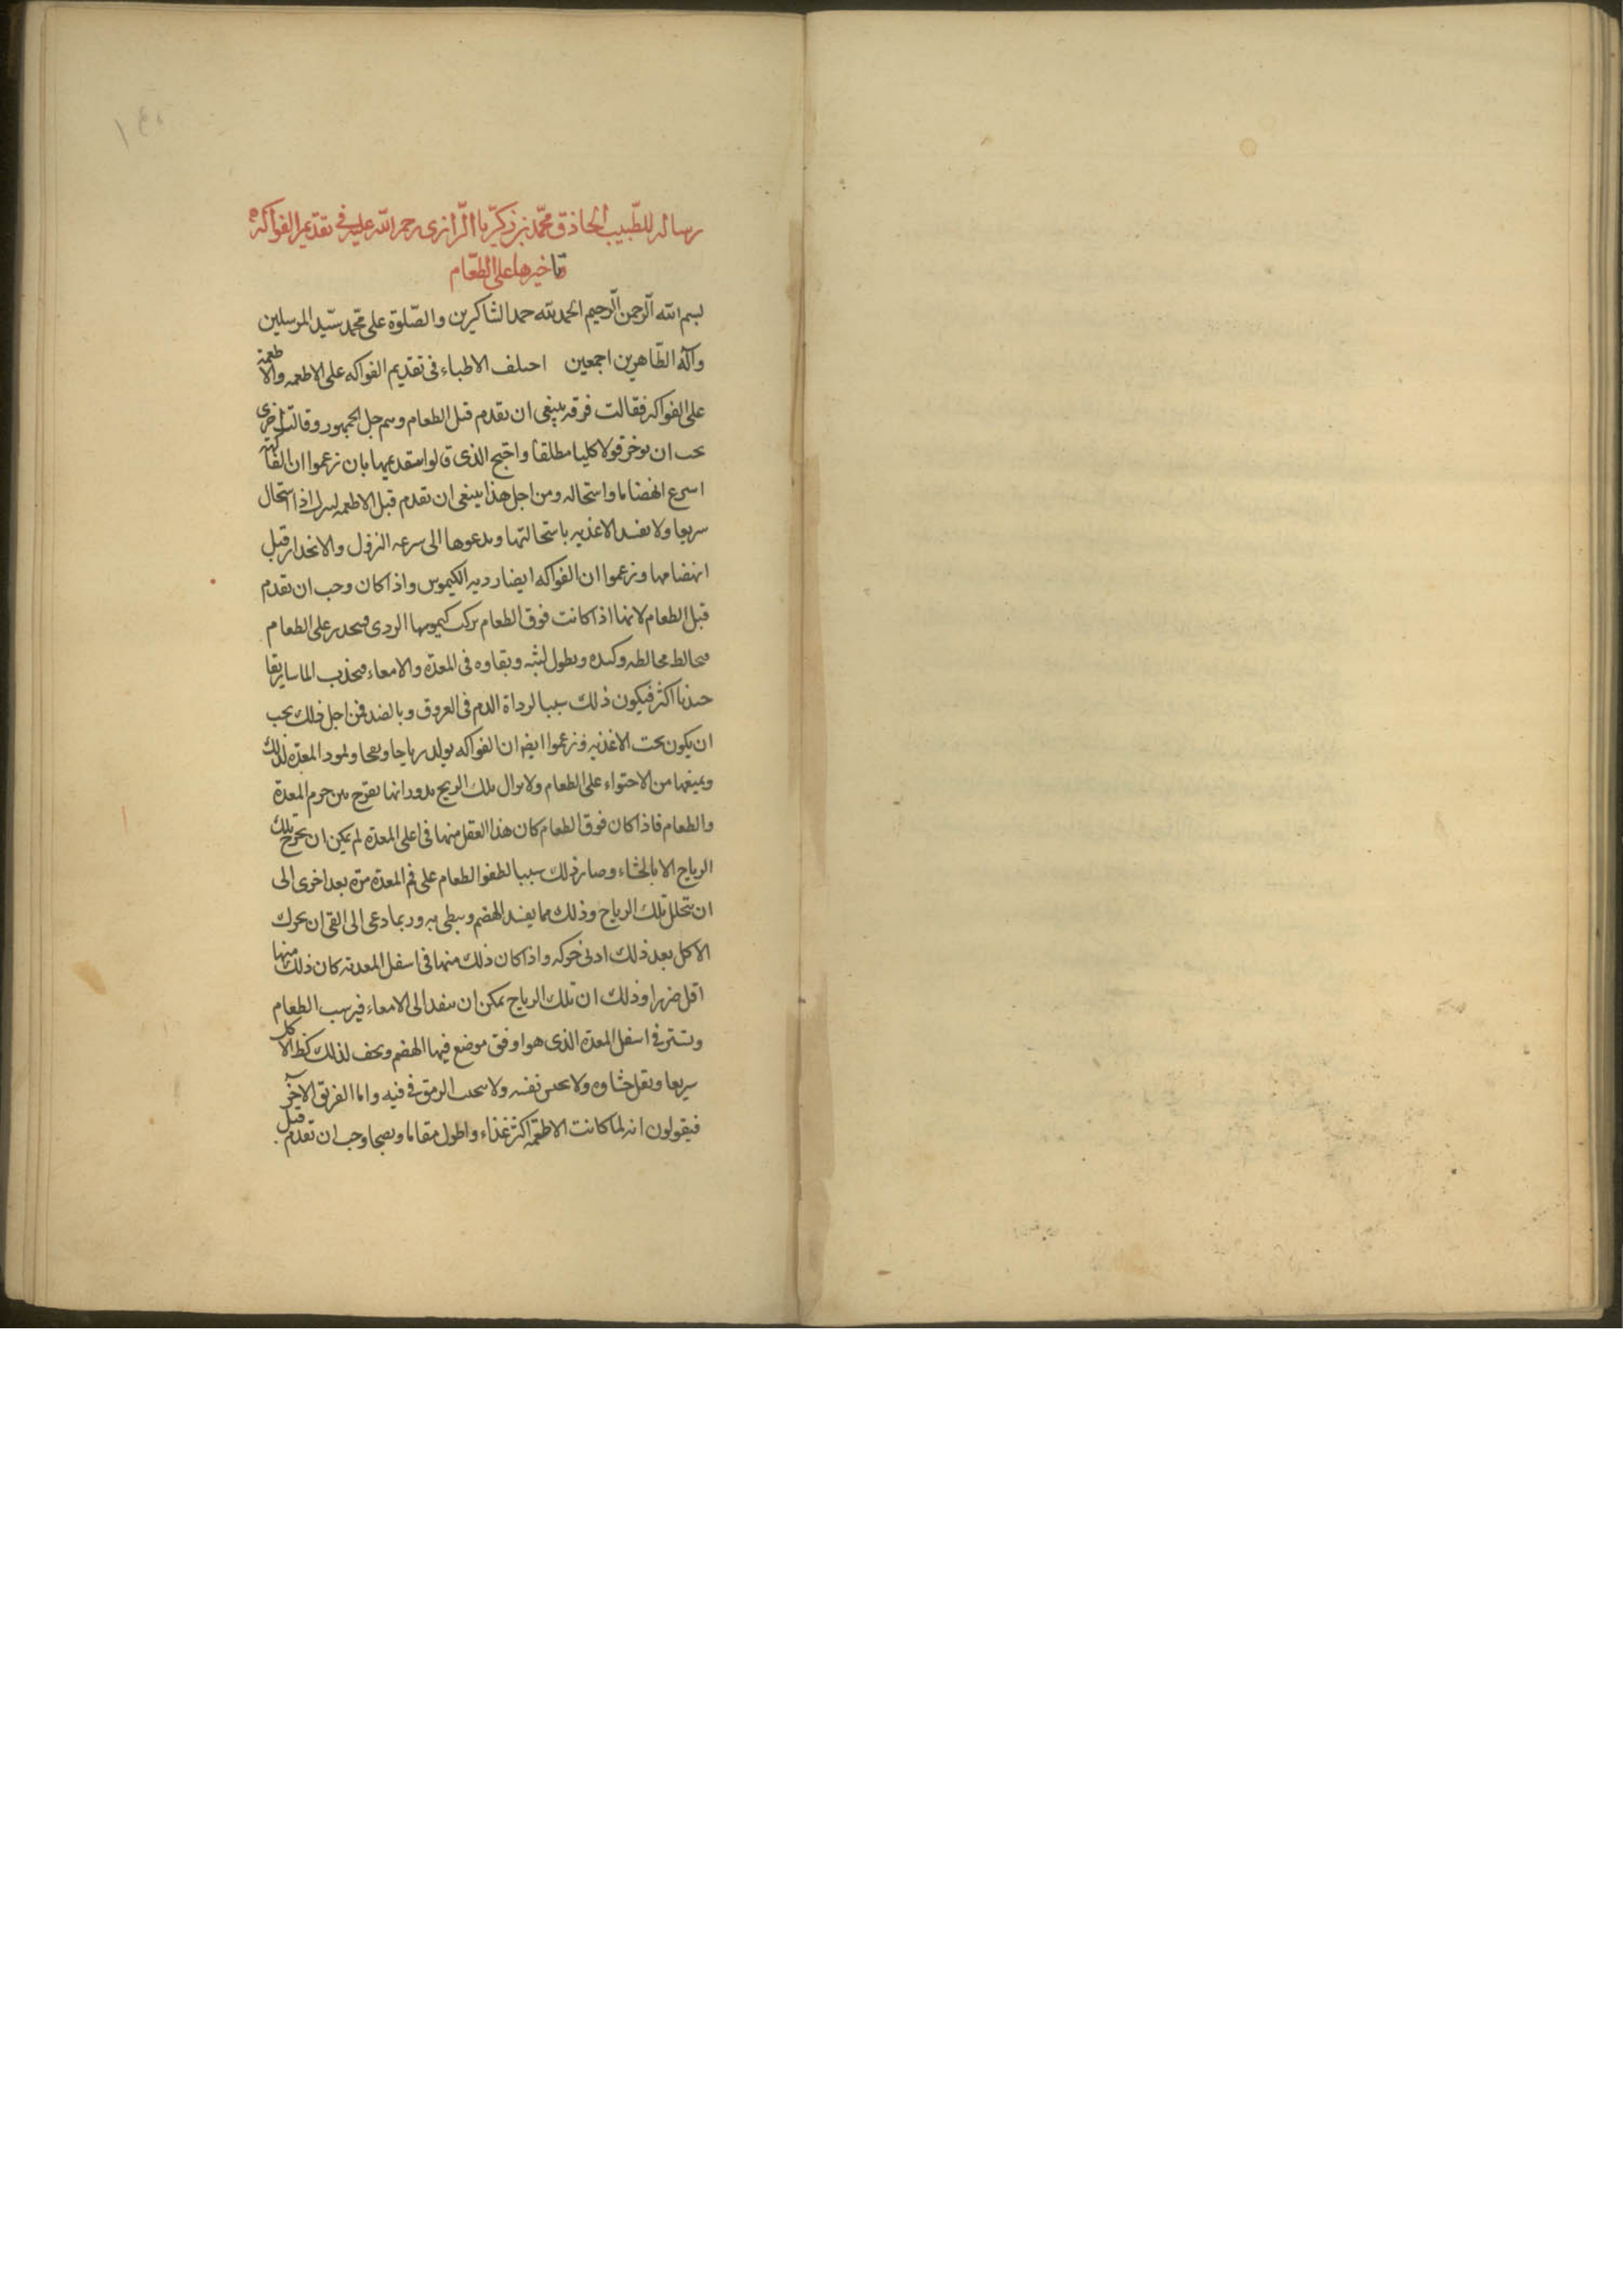 ١٤٥
رساله للطّبيب الحاذق محمّد بن زكريّا الرّازى رحمه الله عليه فى تقديم الفواكه
وتاخيرها على الطّعام
بسم الله الرّحمن الرّحيم الحمد لله حمد الشاكرين والصّلوة على محمّد سيّد المرسلين
وآله الطّاهرين اجمعين احتلف الاطباء فى تقديم الفواكه على الاطعمه والاطعمة
على الفواكه فقالت فرقه ينبغى ان تقدم قبل الطعام وهم جل الجمهور وقالت اخرى
يجب ان توخر قولا كليا مطلقا واحتج الذى قالوا بتقديمها بان زعموا ان الفاكهة
اسرع انهضاما واستحاله ومن اجل هذا ينبغى ان تقدم قبل الاطعمه لينزل اذا استحال
سريعا ولا يفسد الاغذيه باستحالتها ويدعوها الى سرعه النزول والانحدار قبل
انهضامها وزعموا ان الفواكه ايضا رديه الكيموس واذا كان وجب ان تقدم
قبل الطعام لانها اذا كانت فوق الطعام يركب كيموسها الردى وينحدر على الطعام
فيخالط مخالطه وكيده ويطول لبثه وبقاوه فى المعدة والامعاء فيجذب الماساريقا
جذبا اكثر فيكون ذلك سببا لرداة الدم فى العروق وبالضد فمن اجل ذلك يجب
ان يكون تحت الاغذيه وزعموا ايضا ان الفواكه يولد رياحا ونفخا المعده لذلك
ويمنعها من الاحتواء على الطعام ولا يزال تلك الريح بدورانها تفرج بين جرم المعدة
والطعام فاذا كان فوق الطعام كان هذا الفعل منها فى اعلى المعدة لم يمكن ان تخرج تلك
الرياح الا بالجشاء وصار ذلك سببا لطفو الطعام على فم المعدة مرة بعد اخرى الى
ان يتحلل تلك الرياح وذلك مما يفسد الهضم ويبطى به وربما دعى الى القى ان تحرك
الاكل بعد ذلك ادنى حركه واذا كان ذلك منها فى اسفل المعدة كان ذلك منها
اقل ضررا وذلك ان تلك الرياح يمكن ان ينفد الى الامعاء فيرسب الطعام
ويستقر فى اسفل المعدة الذى هو اوفق موضع فيها الهضم ويخف لذلك كظ الاكل
سريعا ويقل جشاوه ولا نفسه ولا الريق فى فيه واما الفريق الآخر
فيقولون انه لما كانت الاطعمة اكثر غذاء واطول مقاما ونضجا وجب ان تقدم قبل